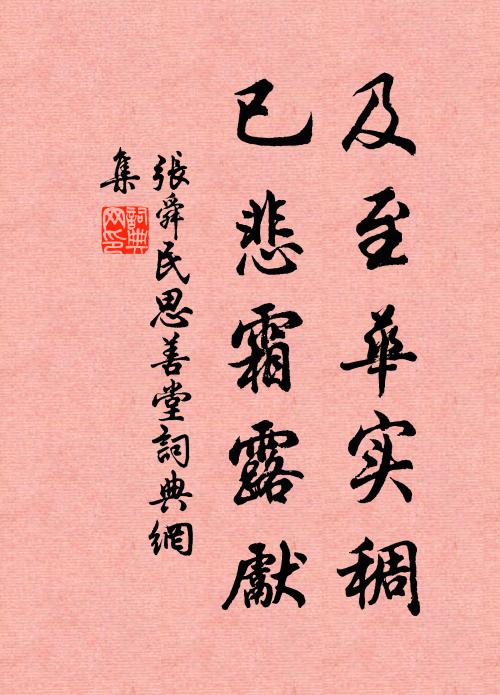 及至華实稠
已悲霜露獻
張舜民思善堂詞典網
集
詞典
网印